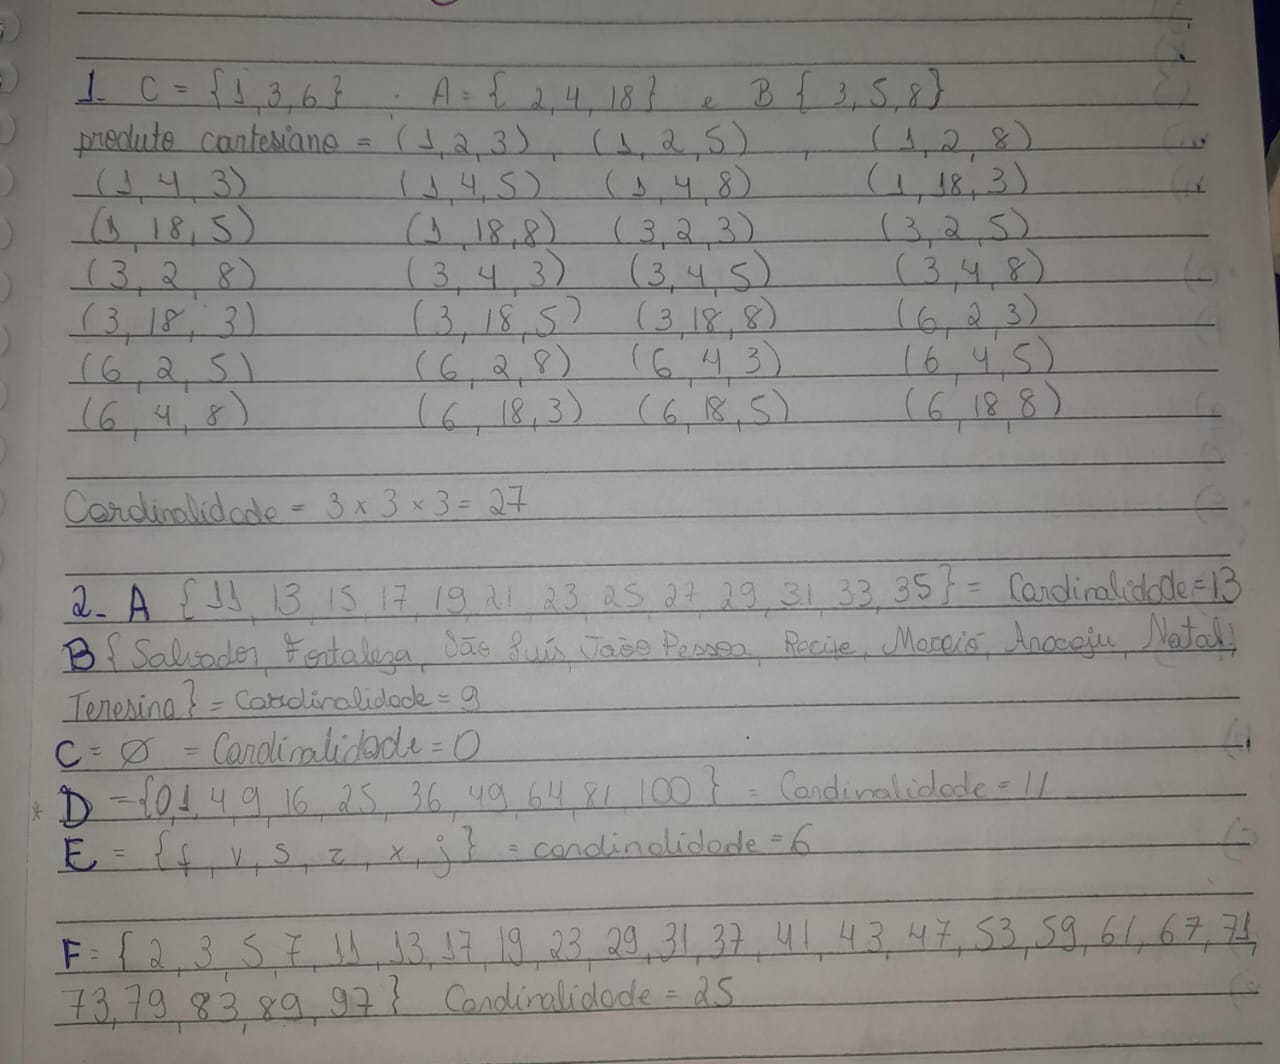 1- C = {1,3,6} . A = { 2,4,18} e B { 3,5,8}
produto cartesiano = (1,2,3), (1,2,5) , (1,2,8)
(1,4,3) (1,4,5) (1,4,8) (1,18,3)
(1,18,5) (1,18,8) (3,2,3) (3,2,5)
(3,2,8) (3,4,3) (3,4,5) (3,4,8)
(3,18,3) (3,18,5) (3,18,8) (6,2,3)
(6,2,5) (6,2,8) (6,4,3) (6,4,5)
(6,4,8) (6,18,3) (6,18,5) (6,18,8)
Cardinalidade = 3 x 3 x 3 = 27
2- A {11, 13, 15, 17, 19, 21, 23, 25, 27, 29, 31, 33, 35} = Cardinalidade = 13
B { Salvador, Fortaleza, São Luís, João Pessoa, Recife, Maceió, Aracaju, Natal,
Teresina} = Cardinalidade = 9
C = ∅ = Cardinalidade = 0
* D = {0,1,4,9,16,25,36,49,64,81,100} = Cardinalidade = 11
E = {f, v, s, z, x, j} = cardinalidade = 6
F = { 2, 3, 5, 7, 11, 13, 17, 19, 23, 29, 31, 37, 41, 43, 47, 53, 59, 61, 67, 71,
73, 79, 83, 89, 97} Cardinalidade = 25